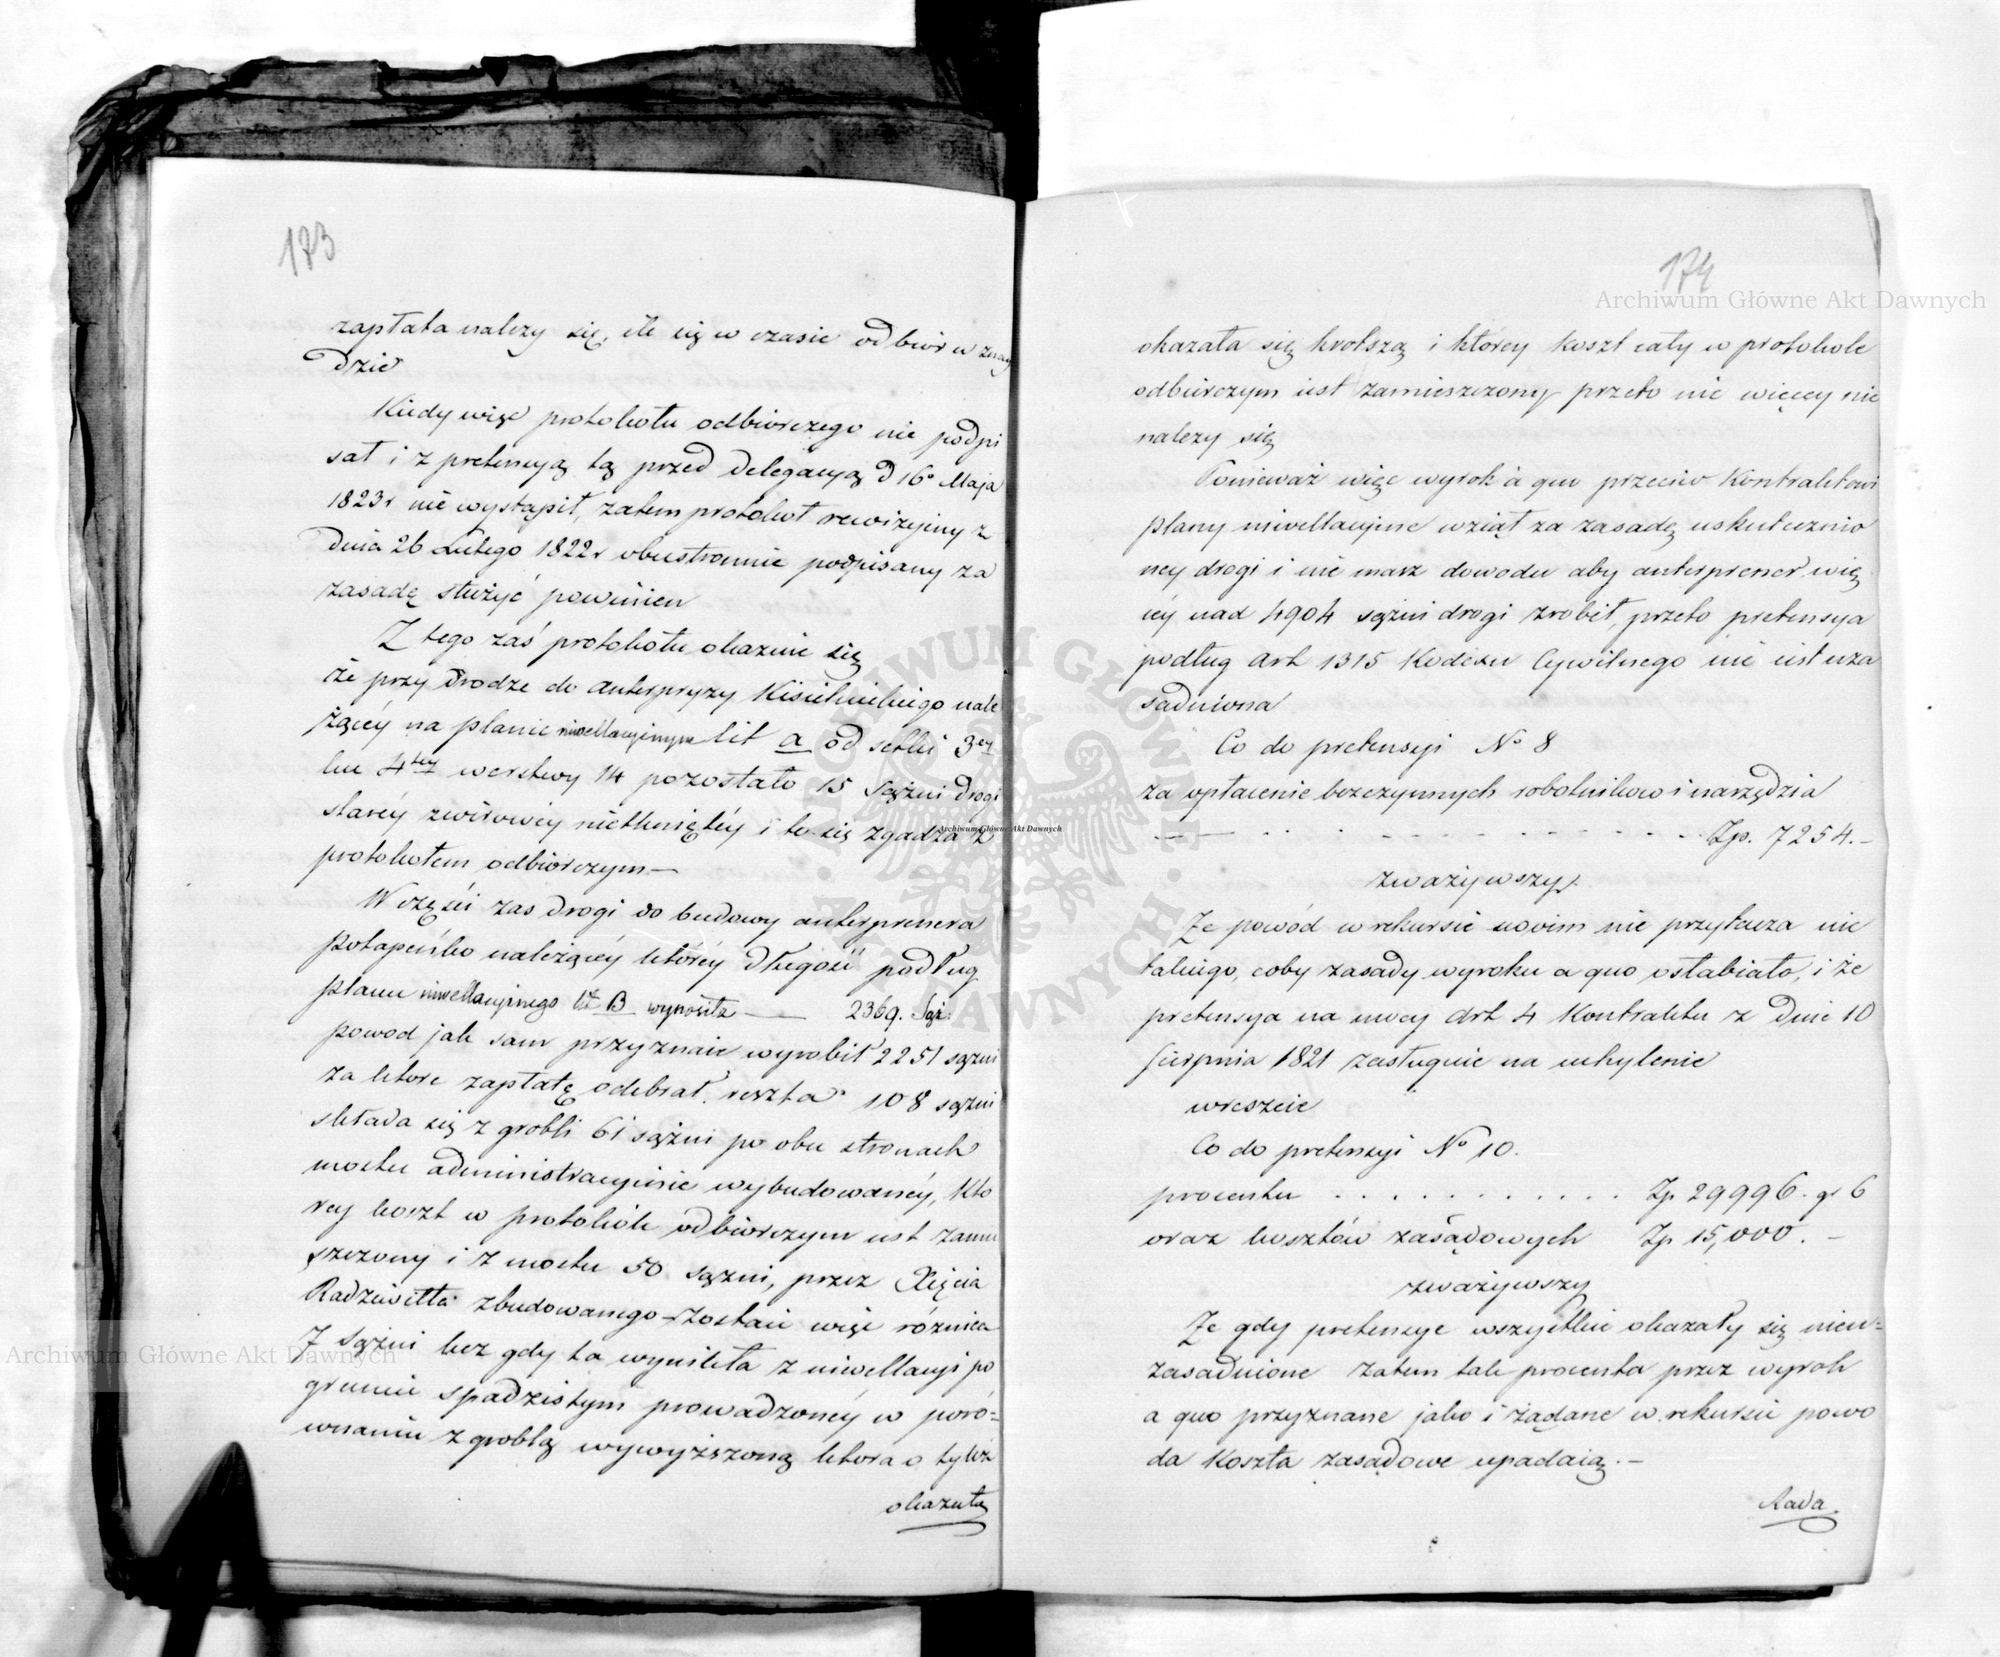 173
zapłata nalezy się, ile się w czasie odbioru znay
dzie
Kiedy więc protokołu odbiorczego nie podpi
sał i z pretensyą tą przed Delegacyą D 16º Maja
1823 r nie wystąpił, zatem protokoł rewizyiny z
Dnia 26 Lutego 1822 r obustronnie podpisany za
zasadę służyć powinien
Z tego zaś protokołu okazuie się
że przy Drodze do anterpryzy Kisielnickiego nale
żącéy na planie niwellacyinym lit a od setki 3ey
ku 4tey werstwy 14 pozostało 15 Sążni drogi
staréy zwirowéy nietkniętéy i to się zgadza z
protokołem odbiorczym —
W części zas Drogi do budowy anterprenera
Potapeńko należącéy któréy długość podług
planu niwellacyinego lit B wynosiła — 2369. Sąż.
powod jak sam przyznaie wyrobił 2251 sążni
za ktore zapłatę odebrał. reszta 108 sążni
składa się z grobli 61 sążni po obu stronach
mostu administracyinie wybudowanéy, kto
rey koszt w protokóle odbiorczym iest zamie
szczony i z mostu 50 sążni, przez Xięcia
Radziwiłła zbudowanego — zostaie więc różnica
7 sążni lecz gdy ta wynikła z niwellacyi po
gruncie spadzistym prowadzonéy w poró-
wnaniu z groblą wywyższoną ktora o tyleż
okazała
174
okazała się krotszą i którey koszt cały w protokole
odbiorczym iest zamieszczony przeto nic więcey nie
nalezy się
Ponieważ więc wyrok a quo przeciw Kontraktowi
plany niwellacyine wziął za zasadę uskutecznio
ney drogi i nie masz dowodu aby anterprener wię
céy nad 4904 sążni drogi zrobił, przeto pretensya
podług Art 1315 Kodexu Cywilnego nie iest uza
sadniona
Co do pretensyi No 8
za opłacenie bezczynnych robotnikow i narzędzia
— . . . . . . . . . . . . . Zp. 7254. —
zważywszy
Ze powód w rekursie swoim nie przytacza nic
takiego, coby zasady wyroku a quo osłabiało, i że
pretensya na mocy Art 4 Kontraktu z Dnia 10
Sierpnia 1821 zasługuie na uchylenie
wreszcie
Co do pretensyi No 10.
procentu . . . . . . . . . . . Zp 29996. gr 6
oraz kosztów zasądowych Zp 15,000. —
zważywszy
Ze gdy pretensye wszystkie okazały się nieu-
zasadnione zatem tak procenta przez wyrok
a quo przyznane jako i żądane w rekursie powo
da koszta zasądowe upadaią. —
Rada
Archiwum Główne Akt Dawnych
Archiwum Główne Akt Dawnych
Archiwum Główne Akt Dawnych
ARCHIWUM GŁÓWNE
· AKT DAWNYCH ·